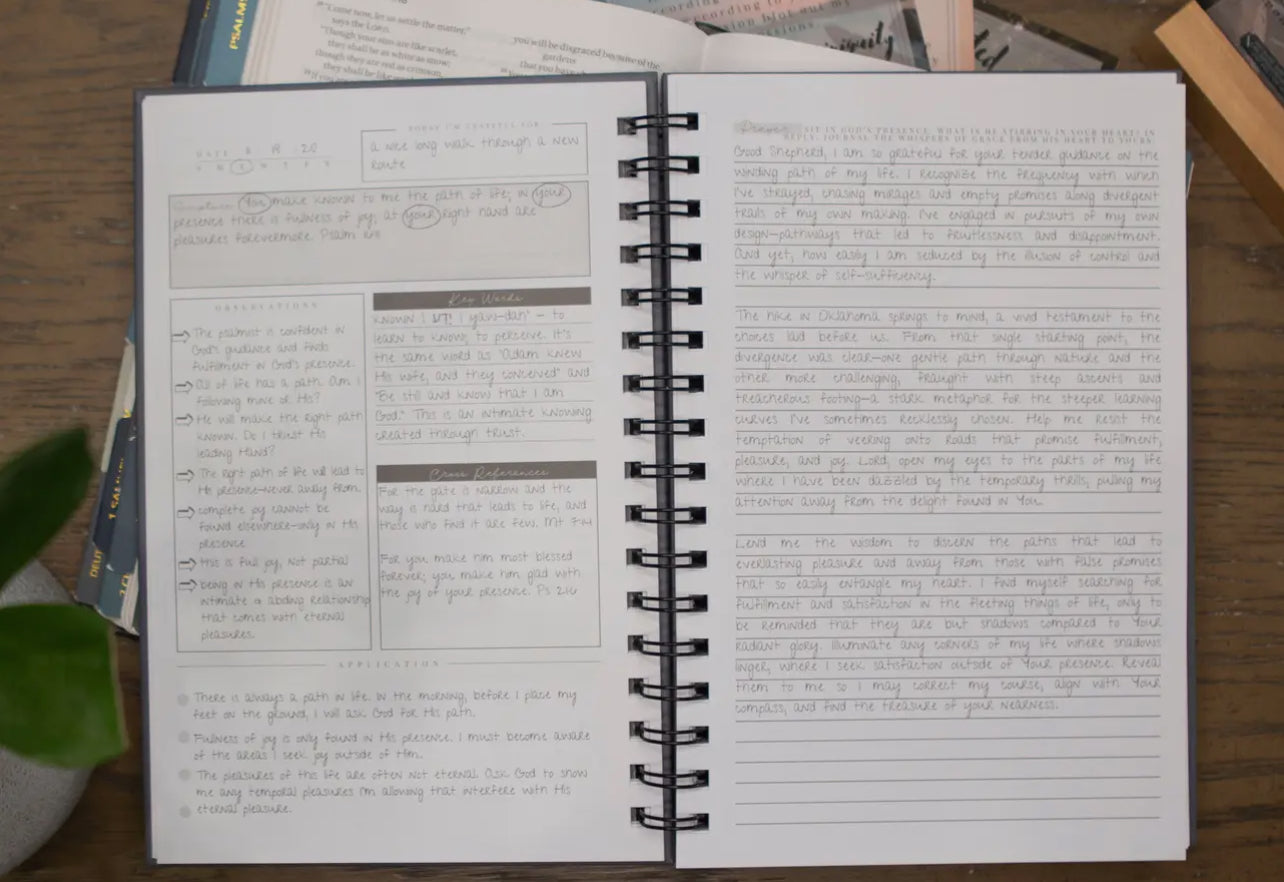 PSALMS
"Come now, let us settle the matter,"
says the Lord.
"Though your sins are like scarlet,
they shall be as white as snow;
though they are red as crimson,
they shall be like
you will be disgraced because of the
gardens
that you have
according to
iniquity
TODAY I'M GRATEFUL FOR
a nice long walk through a new
route
DATE 8 19 20
S M T W T F S
Scripture You make known to me the path of life; in your
presence there is fullness of joy; at your right hand are
pleasures forevermore. Psalm 16:11
OBSERVATIONS
The psalmist is confident in
God's guidance and finds
fulfillment in God's presence.
All of life has a path. Am I
following mine or His?
He will make the right path
known. Do I trust His
leading Hand?
The right path of life will lead to
His presence—never away from.
complete joy cannot be
found elsewhere—only in His
presence
this is full joy, not partial
being in His presence is an
intimate & abiding relationship
that comes with eternal
pleasures.
Key Words
known | ידע | yaw-dah' – to
learn to know, to perceive. It's
the same word as "Adam knew
His wife, and they conceived" and
"Be still and know that I am
God." This is an intimate knowing
created through trust.
Cross References
For the gate is narrow and the
way is hard that leads to life, and
those who find it are few. Mt 7:14
For you make him most blessed
forever; you make him glad with
the joy of your presence. Ps 21:6
APPLICATION
There is always a path in life. In the morning, before I place my
feet on the ground, I will ask God for His path.
Fullness of joy is only found in His presence. I must become aware
of the areas I seek joy outside of Him.
The pleasures of this life are often not eternal. Ask God to show
me any temporal pleasures I'm allowing that interfere with His
eternal pleasure.
Prayer SIT IN GOD'S PRESENCE. WHAT IS HE STIRRING IN YOUR HEART? IN
REPLY, JOURNAL THE WHISPERS OF GRACE FROM HIS HEART TO YOURS:
Good Shepherd, I am so grateful for your tender guidance on the
winding path of my life. I recognize the frequency with which
I've strayed, chasing mirages and empty promises along divergent
trails of my own making. I've engaged in pursuits of my own
design—pathways that led to fruitlessness and disappointment.
And yet, how easily I am seduced by the illusion of control and
the whisper of self-sufficiency.
The hike in Oklahoma springs to mind, a vivid testament to the
choices laid before us. From that single starting point, the
divergence was clear—one gentle path through nature and the
other more challenging, fraught with steep ascents and
treacherous footing—a stark metaphor for the steeper learning
curves I've sometimes recklessly chosen. Help me resist the
temptation of veering onto roads that promise fulfillment,
pleasure, and joy. Lord, open my eyes to the parts of my life
where I have been dazzled by the temporary thrills, pulling my
attention away from the delight found in You.
Lend me the wisdom to discern the paths that lead to
everlasting pleasure and away from those with false promises
that so easily entangle my heart. I find myself searching for
fulfillment and satisfaction in the fleeting things of life, only to
be reminded that they are but shadows compared to Your
radiant glory. Illuminate any corners of my life where shadows
linger, where I seek satisfaction outside of Your presence. Reveal
them to me so I may correct my course, align with Your
compass, and find the treasure of your nearness.